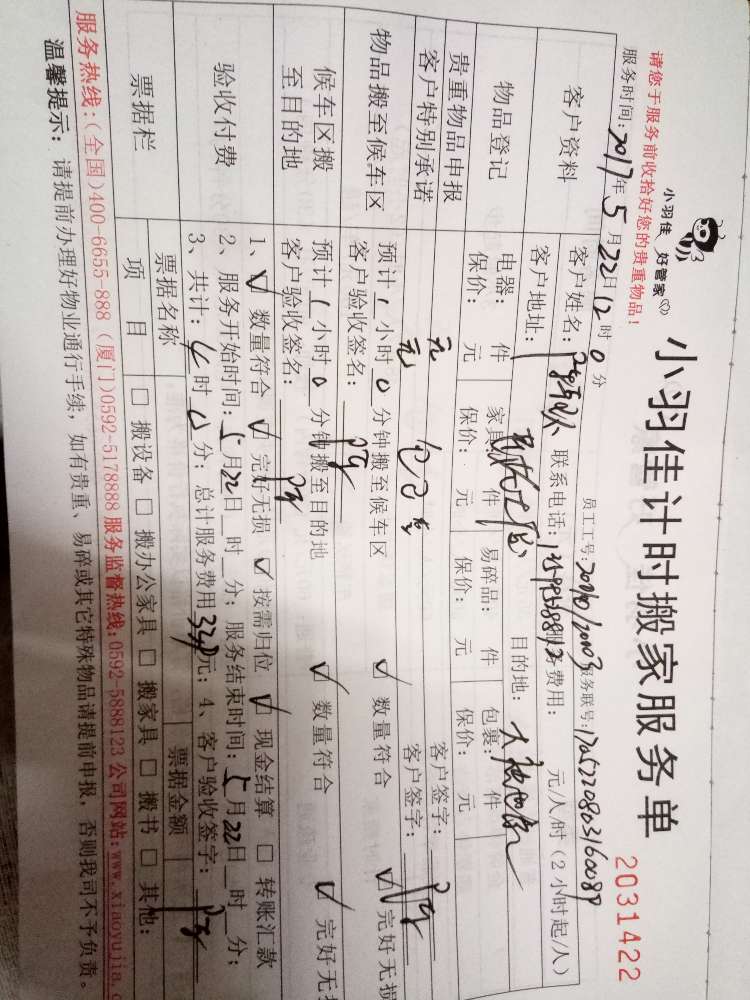 小羽佳 好管家
小羽佳计时搬家服务单
2031422
请您于服务前收拾好您的贵重物品!
员工工号: 服务联号:
服务时间:2017年5月22日12时0分
客户资料
客户姓名: 联系电话: 服务费用: 元/人/时(2小时起/人)
客户地址: 目的地:
物品登记
电器: 件 家具: 件 易碎品: 件 包裹: 件
保价: 元 保价: 元 保价: 元 保价: 元
贵重物品申报 元 客户签字:
客户特别承诺 无 客户签字:
物品搬至候车区
预计1小时0分钟搬至候车区 √ 数量符合 √ 完好无损
客户验收签名:
候车区搬至目的地
预计1小时0分钟搬至目的地 √ 数量符合 √ 完好无损
客户验收签名:
验收付费
1、√ 数量符合 √ 完好无损 √ 按需归位 √ 现金结算 □ 转账汇款
2、服务开始时间:5月22日 时 分;服务结束时间:5月22日 时 分;
3、共计: 时 分;总计服务费用 元;4、客户验收签字:
票据栏
票据名称 票据金额
项目 □ 搬设备 □ 搬办公家具 □ 搬家具 □ 搬书 □ 其他:
服务热线:(全国)400-6655-888 (厦门)0592-5178888 服务监督热线:0592-5888123 公司网站:www.xiaoyujia.c
温馨提示: 请提前办理好物业通行手续,如有贵重、易碎或其它特殊物品请提前申报,否则我司不予负责。